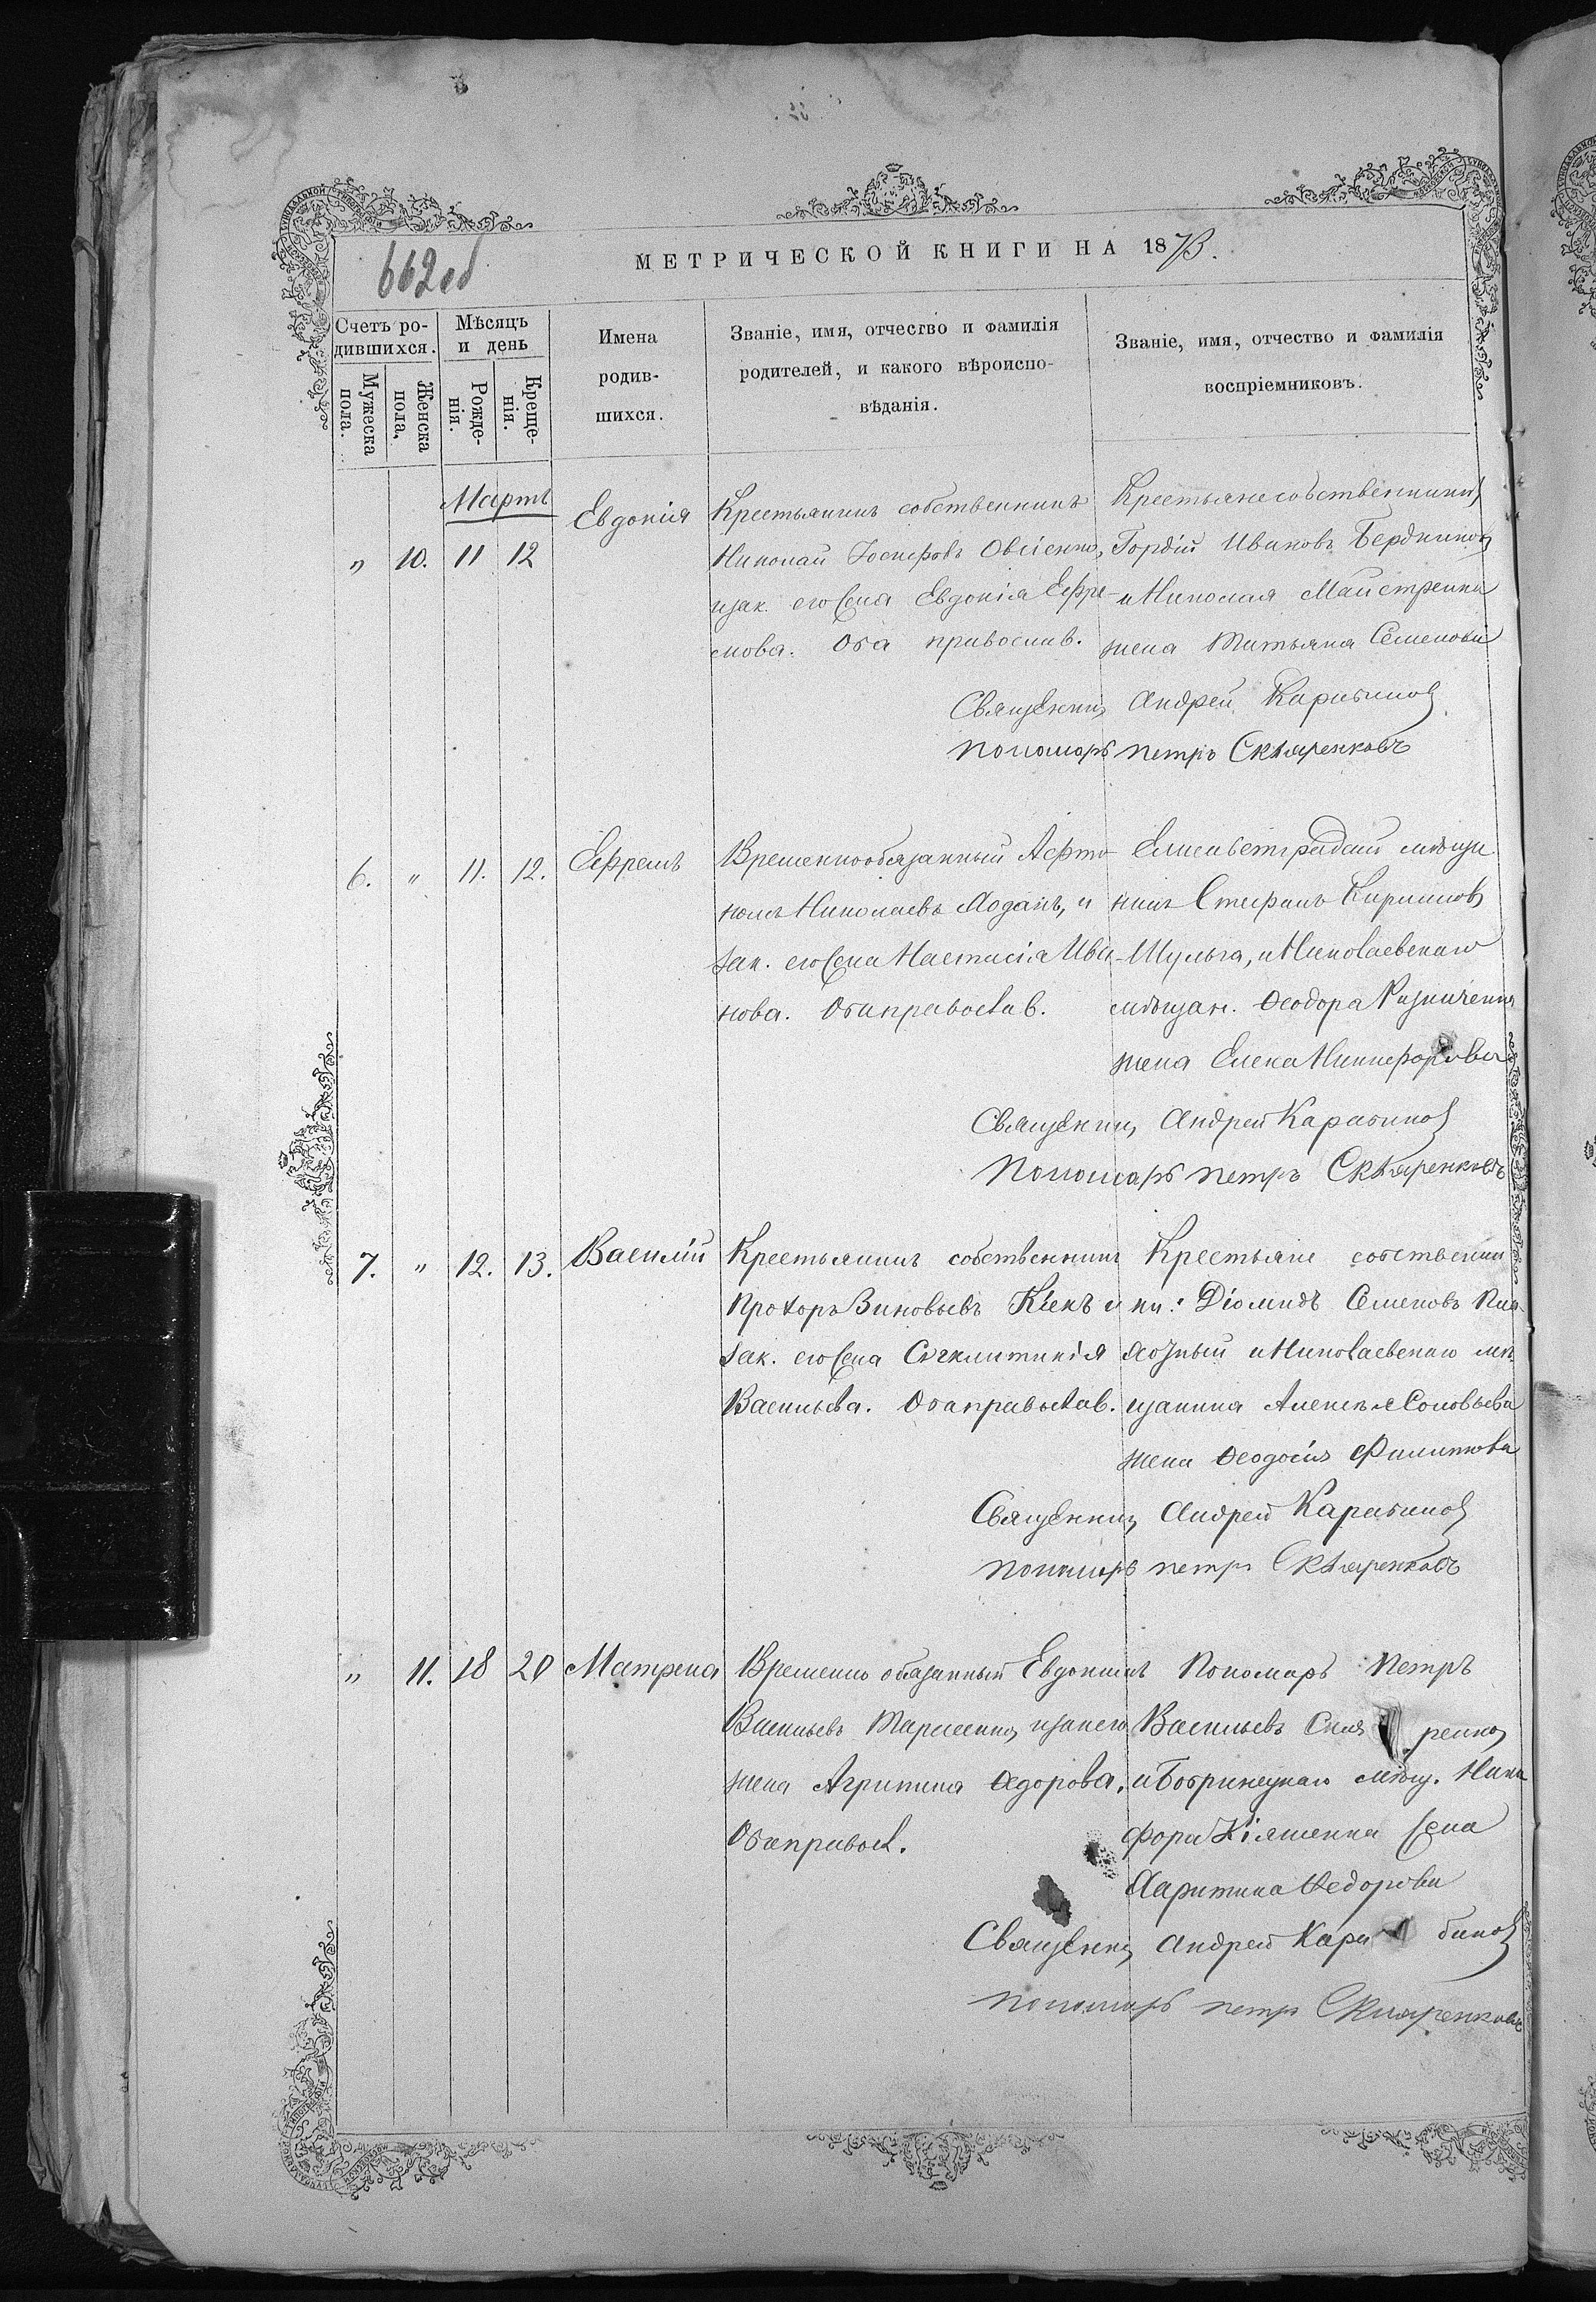 662 об
МЕТРИЧЕСКОЙ КНИГИ НА 1873.
Счетъ ро-
дившихся.
Мужеска
пола.
Женска
пола.
Мѣсяцъ
и день
Рожде-
нія.
Креще-
нія.
Имена
родив-
шихся.
Званіе, имя, отчество и фамилія
родителей, и какого вѣроиспо-
вѣданія.
Званіе, имя, отчество и фамилія
воспріемниковъ.
Мартъ
" 10. 11 12
Евдокія
Крестьянинъ собственникъ
Николай Іосифовъ Овсіенко,
и зак. его жена Евдокія Ефре-
мова. Оба православ.
Крестьяне собственники,
Гордій Ивановъ Бердников,
и Николая Майстренка
жена Татьяна Семенова
Священник Андрей Карабинов
Пономарь Петръ Скляренковъ
6. " 11. 12.
Ефремъ
Временнообязанный
Николаевъ Лоданъ, и
зак. его жена Настасія Ива-
нова. Оба православ.
Елисаветградский мѣща-
нинъ Стефанъ Кириллов
Шульга, и Николаевскаго
мѣщан. Ѳеодора
жена Елена Никифорова
Священник Андрей Карабинов
Пономарь Петръ Скляренковъ
7. " 12. 13.
Василій
Крестьянинъ собственникъ
Прохоръ Зиновьевъ Кіекъ и
зак. его жена Сигклитикія
Васильева. Оба православ.
Крестьяне собственни-
ки: Діомидъ Семеновъ
и Николаевскаго мѣ-
щанина Алексѣя Соловьева
жена Ѳеодосія Филипова
Священник Андрей Карабинов
Пономарь Петръ Скляренковъ
" 11. 18 20
Матрена
Временно обязанный Евдокимъ
Васильевъ Тарасенко, и зак. его
жена Агрипина Ѳедорова,
Оба правосл.
Пономарь Петръ
Васильевъ Скля ренко,
и Бобринецкаго мѣщ. Ники
фора Кіяшенка жена
Харитина Ѳедорова
Священник Андрей Кара бинов
Пономарь Петръ Скляренковъ